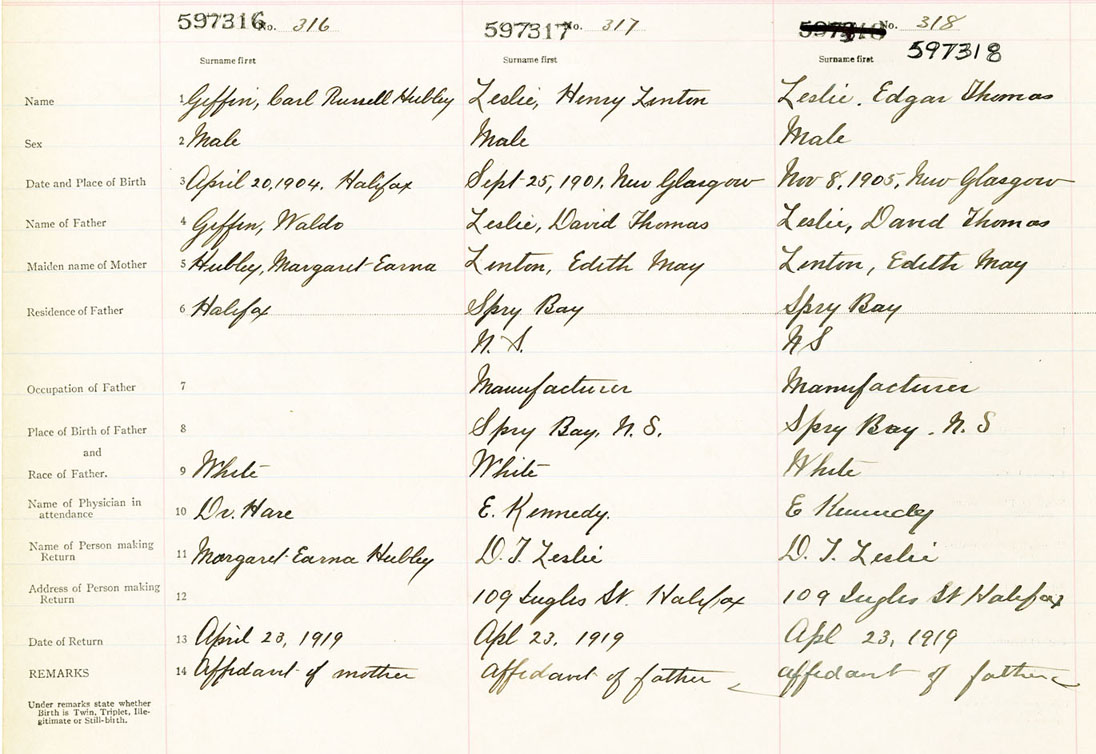 597316 No. 316
597317 No. 317
No. 318
597318
Surname first
Surname first
Surname first
Name 1 Giffin, Carl Russell Hubley
Leslie, Henry Linton
Leslie, Edgar Thomas
Sex 2 Male
Male
Male
Date and Place of Birth 3 April 20, 1904. Halifax
Sept 25, 1901, New Glasgow
Nov 8, 1905, New Glasgow
Name of Father 4 Giffin, Waldo
Leslie, David Thomas
Leslie, David Thomas
Maiden name of Mother 5 Hubley, Margaret Earna
Linton, Edith May
Linton, Edith May
Residence of Father 6 Halifax
Spry Bay
Spry Bay
N. S.
N S
Occupation of Father 7
Manufacturer
Manufacturer
Place of Birth of Father 8
Spry Bay, N. S.
Spry Bay. N. S
and
Race of Father. 9 White
White
White
Name of Physician in
attendance 10 Dr. Hare
E. Kennedy.
E Kennedy
Name of Person making
Return 11 Margaret Earna Hubley
D. T. Leslie
D. T. Leslie
Address of Person making
Return 12
109 Inglis St. Halifax
109 Inglis St Halifax
Date of Return 13 April 23, 1919
Apl 23, 1919
Apl 23, 1919
REMARKS 14 Affidavit of mother
Affidavit of father
affidavit of father
Under remarks state whether
Birth is Twin, Triplet, Ille-
gitimate or Still-birth.